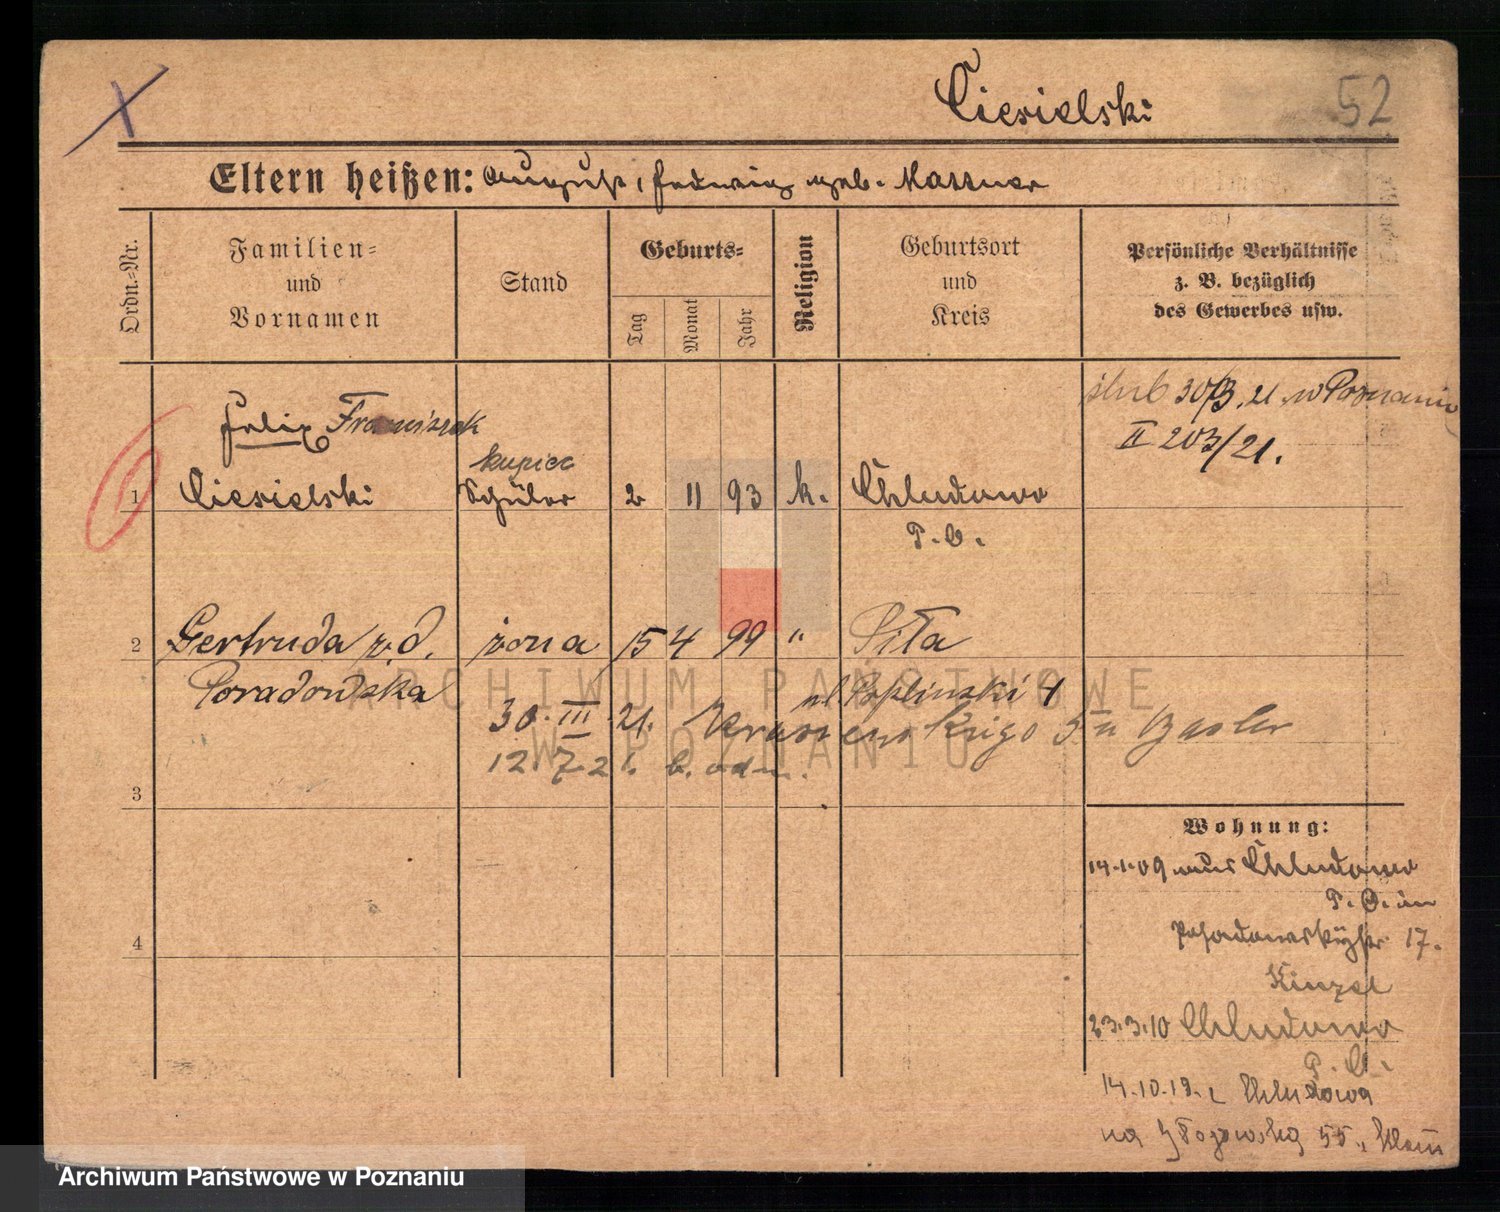 Ciesielski
52
Eltern heißen: August, Hedwig geb. Massner
Ordn.-Nr.
Familien-
und
Vornamen
Stand
Geburts-
Tag
Monat
Jahr
Religion
Geburtsort
und
Kreis
Persönliche Verhältnisse
z. B. bezüglich
des Gewerbes usw.
ślub 30/3. 21. w Poznaniu
II 203/21.
Felix Franciszek
kupiec
1 Ciesielski Schüler 2 11 93 k. Chludowo
P. O.
2 Gertruda z. d. żona 15 4 99 " Piła
Poradowska
ul Poplinski 4
30. III 21.
12 7 21. b. odm.
3
Wohnung:
14.1.09 aus Chludowo
P. O. in
Posadowskystr 17.
Kinzel
4
23.3.10 Chludowo
P. O.
14.10.19. z Chludowa
na Głogowską 55,
ARCHIWUM PAŃSTWOWE
W POZNANIU
Archiwum Państwowe w Poznaniu